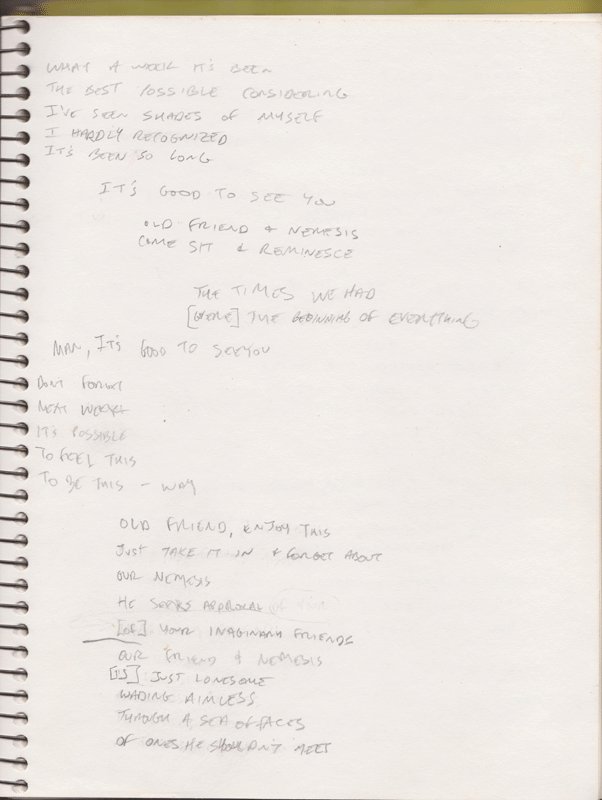 WHAT A WEEK IT'S BEEN
THE BEST POSSIBLE CONSIDERING
I'VE SEEN SHADES OF MYSELF
I HARDLY RECOGNIZED
IT'S BEEN SO LONG
IT'S GOOD TO SEE YOU
OLD FRIEND & NEMESIS
COME SIT & REMINESCE
THE TIMES WE HAD
[WERE] THE BEGINNING OF EVERYTHING
MAN, IT'S GOOD TO SEE YOU
DONT FORGET
NEXT WEEK
IT'S POSSIBLE
TO FEEL THIS
TO BE THIS - WAY
OLD FRIEND, ENJOY THIS
JUST TAKE IT IN & FORGET ABOUT
OUR NEMESIS
HE SEEKS APPROVAL
[OF] YOUR IMAGINARY FRIENDS
OUR FRIEND & NEMESIS
[IS] JUST LONESOME
WADING AIMLESS
THROUGH A SEA OF FACES
OF ONES HE SHOULDN'T MEET